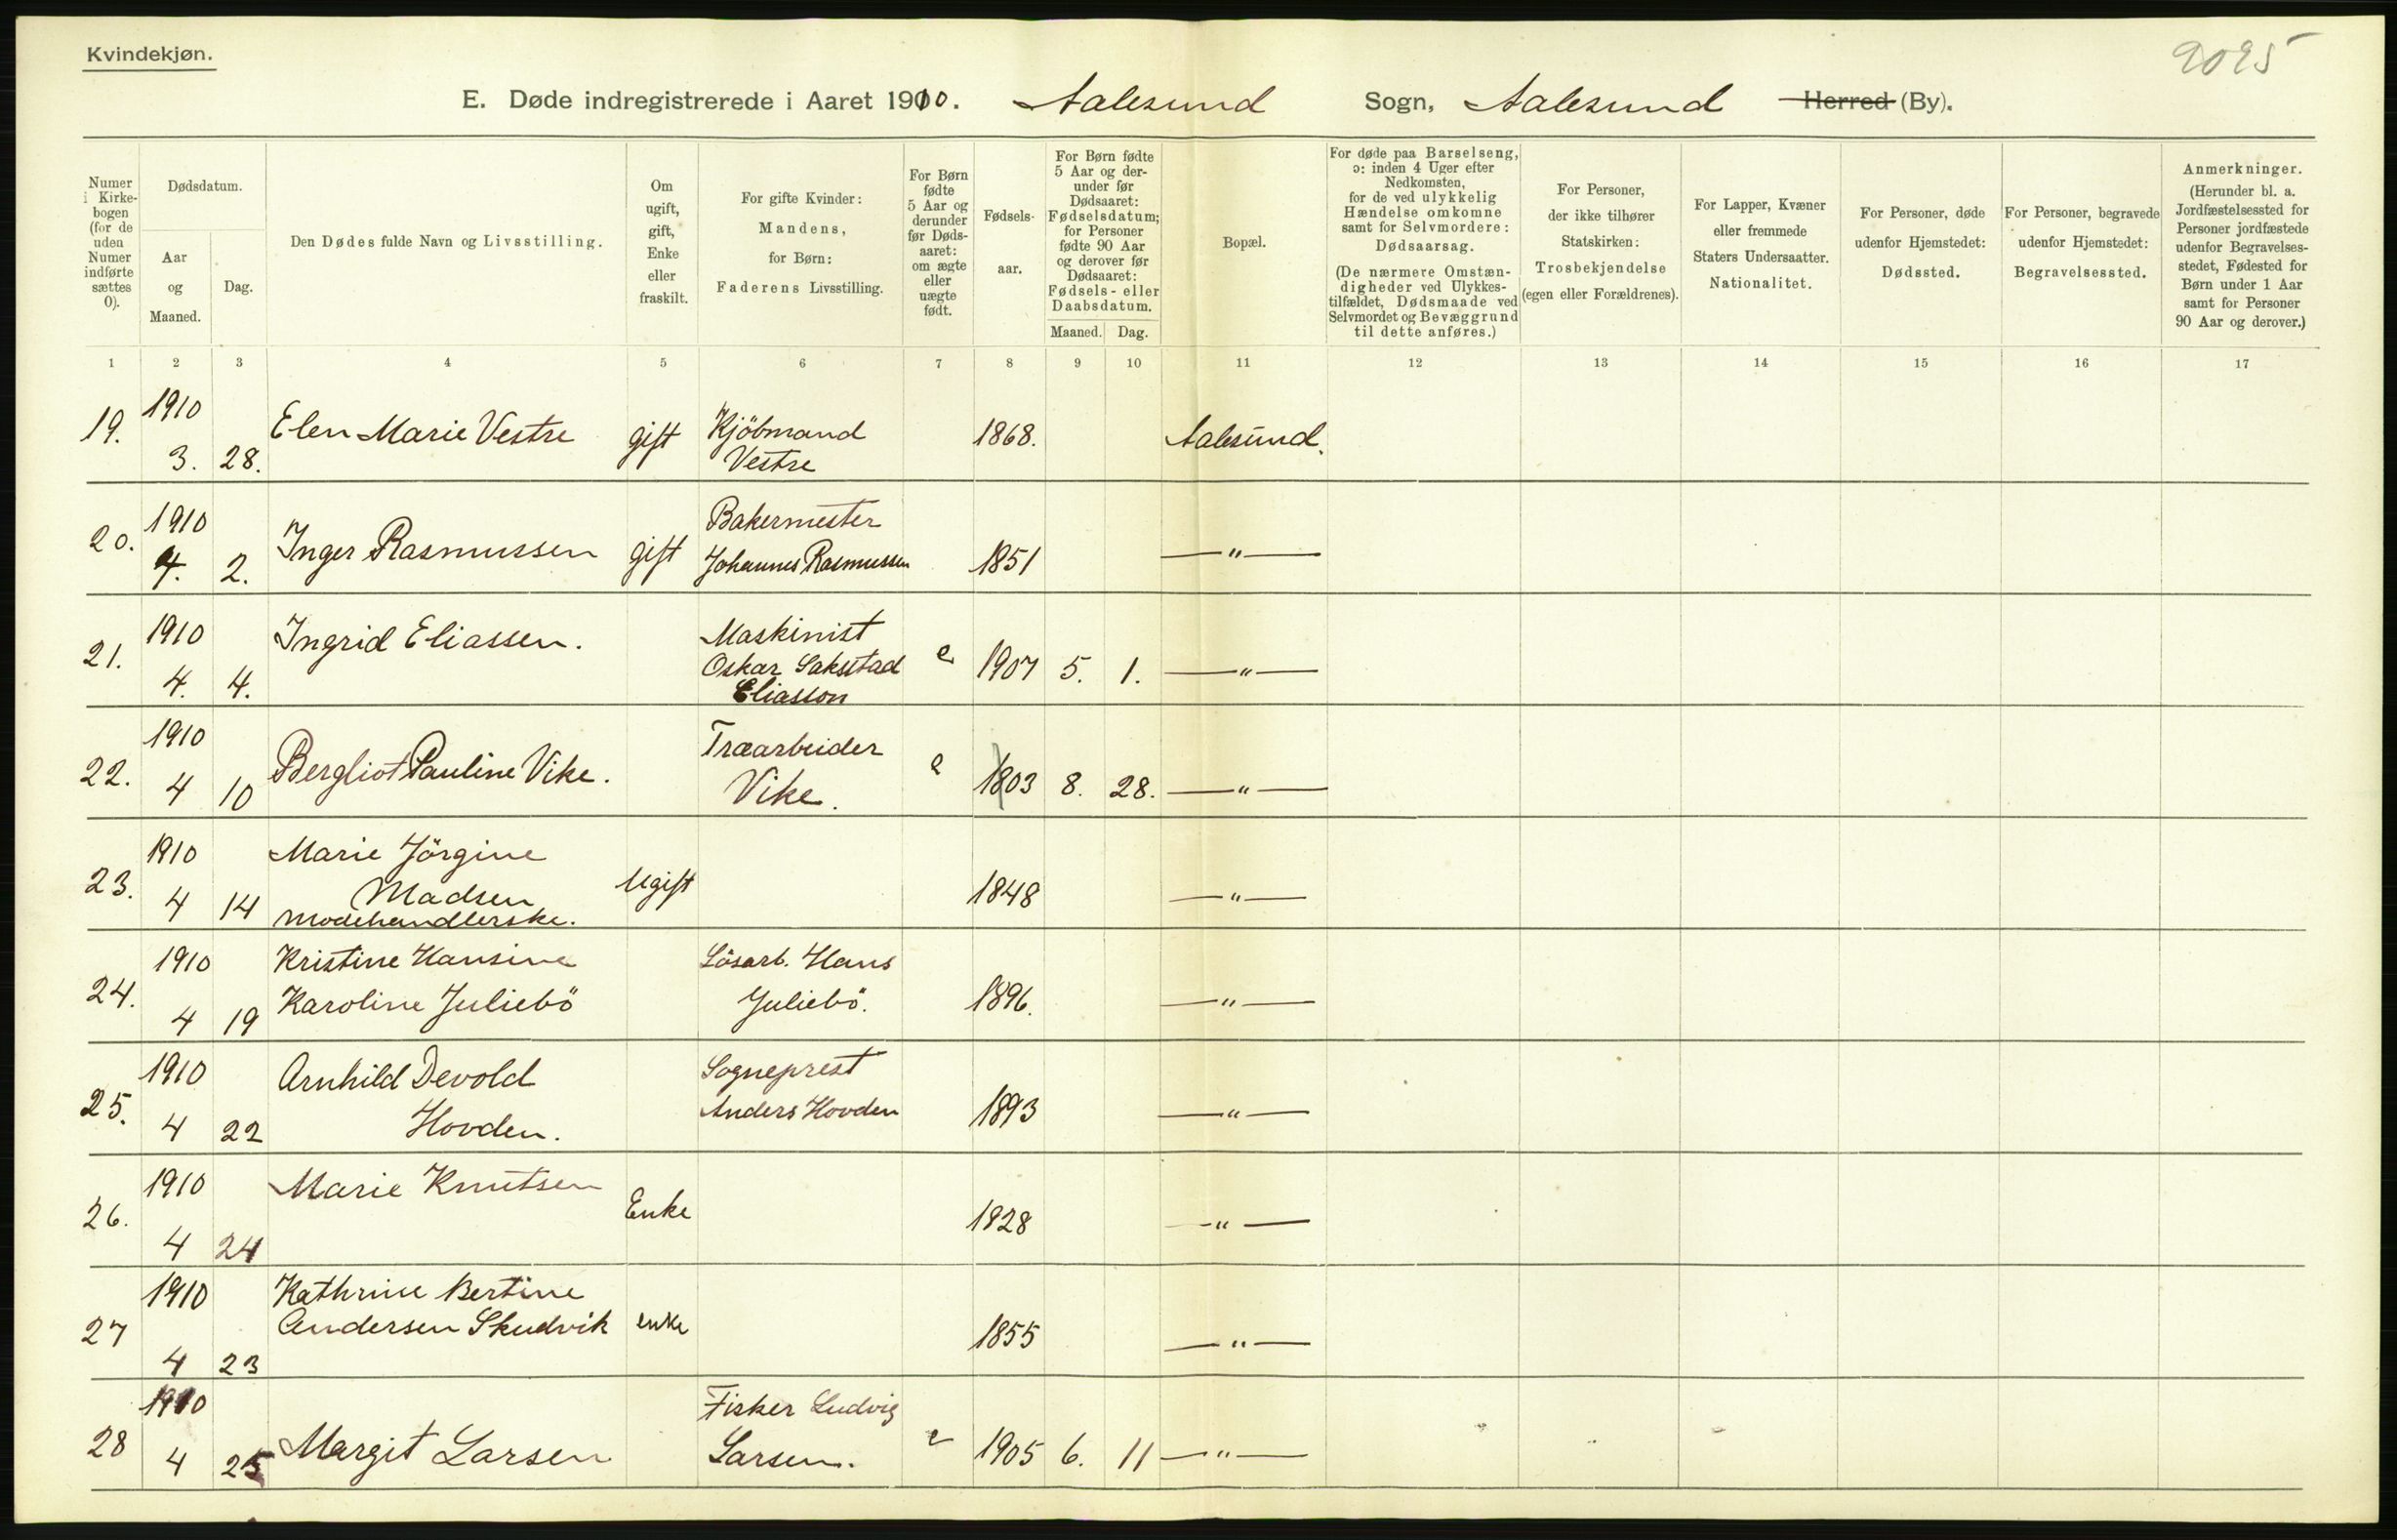 Kvindekjøn.
2095
E. Døde indregistrerede i Aaret 1910. Aalesund Sogn, Aalesund Herred (By).
Numer i Kirkebogen (for de uden Numer indførte sættes 0).
Dødsdatum.
Aar og Maaned.
Dag.
Den Dødes fulde Navn og Livsstilling.
Om ugift, gift, Enke eller fraskilt.
For gifte Kvinder: Mandens, for Børn: Faderens Livsstilling.
For Børn fødte 5 Aar og derunder før Dødsaaret: om ægte eller uægte født.
Fødselsaar.
For Børn fødte 5 Aar og derunder før Dødsaaret: Fødselsdatum; for Personer fødte 90 Aar og derover før Dødsaaret: Fødsels- eller Daabsdatum.
Maaned. Dag.
Bopæl.
For døde paa Barselseng, ɔ: inden 4 Uger efter Nedkomsten, for de ved ulykkelig Hændelse omkomne samt for Selvmordere: Dødsaarsag.
(De nærmere Omstændigheder ved Ulykkestilfældet, Dødsmaade ved Selvmordet og Bevæggrund til dette anføres.)
For Personer, der ikke tilhører Statskirken: Trosbekjendelse (egen eller Forældrenes).
For Lapper, Kvæner eller fremmede Staters Undersaatter. Nationalitet.
For Personer, døde udenfor Hjemstedet: Dødssted.
For Personer, begravede udenfor Hjemstedet: Begravelsessted.
Anmerkninger.
(Herunder bl. a. Jordfæstelsessted for Personer jordfæstede udenfor Begravelsesstedet, Fødested for Børn under 1 Aar samt for Personer 90 Aar og derover.)
1 2 3 4 5 6 7 8 9 10 11 12 13 14 15 16 17
19. 1910 3. 28. Elen Marie Vestre gift Kjöbmand Vestre 1868. Aalesund.
20. 1910 4. 2. Inger Rasmussen gift Bakermester Johannes Rasmussen 1851 —"—
21. 1910 4. 4. Ingrid Eliassen. Maskinist Oskar Sakstad Eliasson e 1907 5. 1. —"—
22. 1910 4 10 Bergliot Pauline Vike. Træarbeider Vike. e 1803 8. 28. —"—
23. 1910 4 14 Marie Jörgine Madsen Modehandlerske. Ugift 1848 —"—
24. 1910 4 19 Kristine Hansine Karoline Juliebö Lösarb. Hans Juliebö. 1896. —"—
25. 1910 4 22 Arnhild Devold Hovden. Sogneprest Anders Hovden 1893 —"—
26. 1910 4 24 Marie Knutsen Enke 1828 —"—
27 1910 4 23 Kathrine Bertine Andersen Skudvik enke 1855 —"—
28 1910 4 25 Margit Larsen Fisker Ludvig Larsen. e 1905 6. 11 —"—